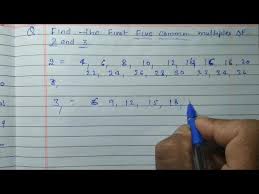 Q Find the First Five Common multiples of
2 and 3.
2 = 4, 6, 8, 10, 12, 14, 16, 18, 20
22, 24, 26, 28, 30 32, 34, 36
3,
3, = 6 9, 12, 15, 18,